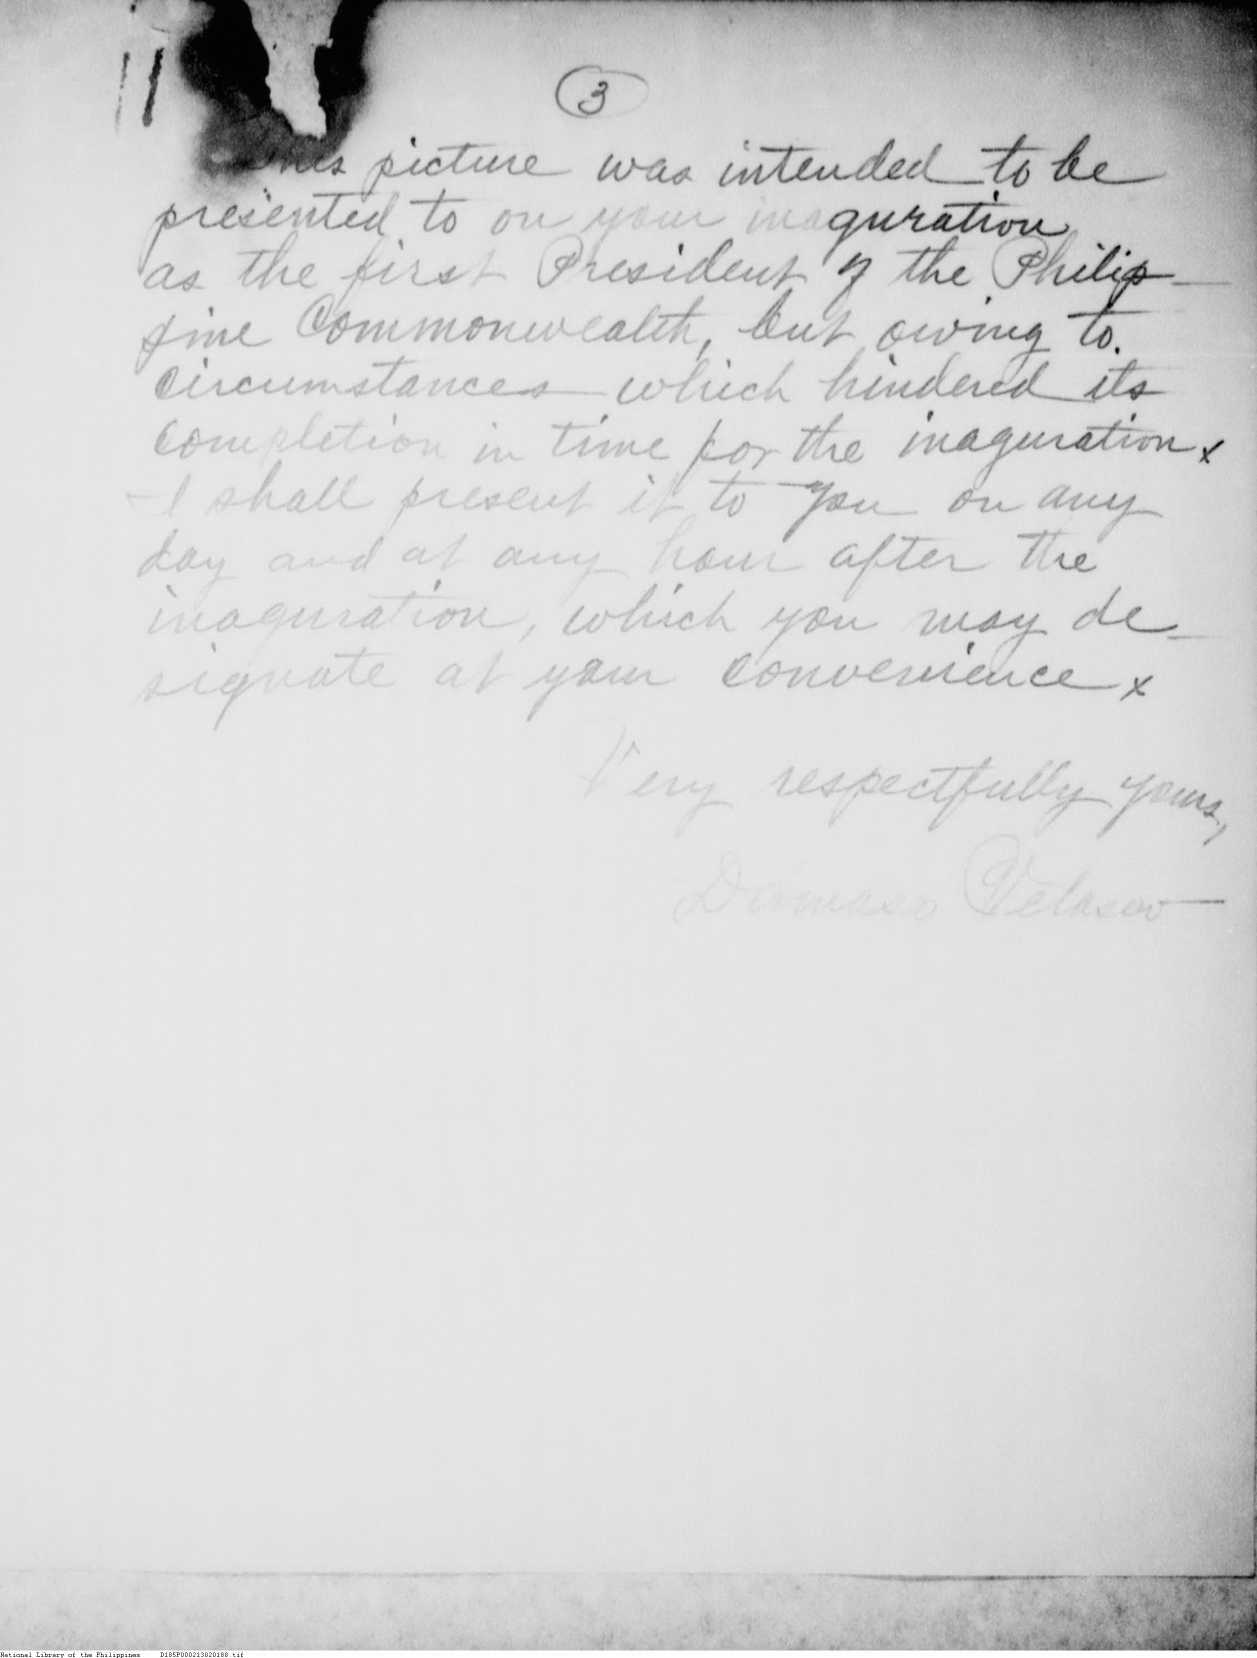 11
3
This picture was intended to be
presented to on your inaguration
as the first President of the Philip-
pine Commonwealth, but owing to.
circumstances which hindered its
completion in time for the inaguration x
I shall present it to you on any
day and at any hour after the
inaguration, which you may de-
signate at your convenience x
Very respectfully yours,
Damaso Velasco
National Library of the Philippines D185P000213020188.tif